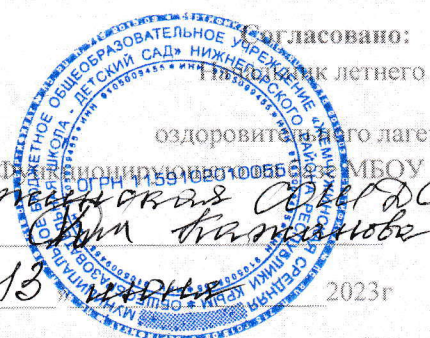 Согласовано:
Начальник летнего
оздоровительного лагеря
функционирующего на базе МБОУ
СОШ ДС
13 июня 2023г
МУНИЦИПАЛЬНОЕ БЮДЖЕТНОЕ ОБЩЕОБРАЗОВАТЕЛЬНОЕ УЧРЕЖДЕНИЕ
СРЕДНЯЯ ОБЩЕОБРАЗОВАТЕЛЬНАЯ ШКОЛА - ДЕТСКИЙ САД» НИЖНЕГОРСКОГО РАЙОНА РЕСПУБЛИКИ КРЫМ
ОГРН 1159102010055